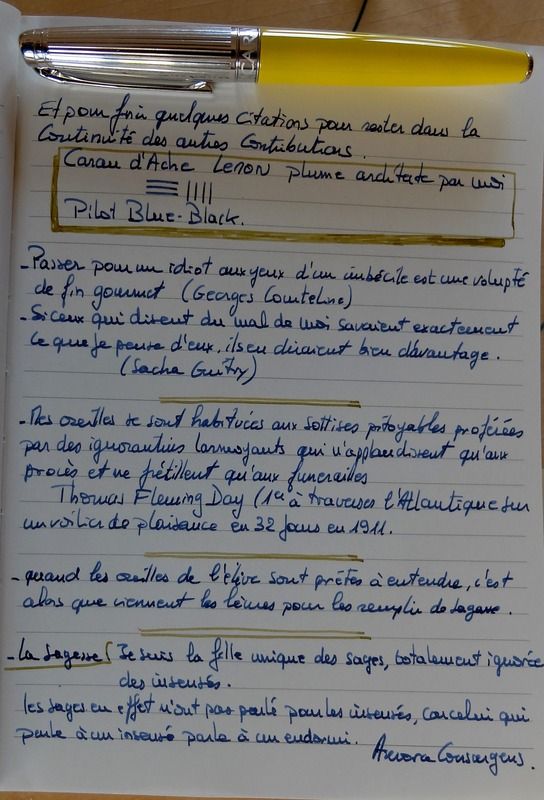 CARAN
Et pour finir quelques citations pour rester dans la
continuité des autres contributions.
Caran d'Ache LEMON plume architecte par moi
Pilot Blue-Black.
- Passer pour un idiot aux yeux d'un imbécile est une volupté
de fin gourmet (Georges Courteline)
- Si ceux qui disent du mal de moi savaient exactement
ce que je pense d'eux, ils en diraient bien davantage.
(Sacha Guitry)
- Mes oreilles se sont habituées aux sottises pitoyables proférées
par des ignorantins larmoyants qui n'applaudissent qu'aux
procès et ne frétillent qu'aux funerailles
Thomas Fleming Day (1er à traverser l'Atlantique sur
un voilier de plaisance en 32 jours en 1911.
- quand les oreilles de l'élève sont prêtes à entendre, c'est
alors que viennent les lèvres pour les remplir de sagesse.
- La Sagesse Je suis la fille unique des sages, totalement ignorée
des insensés.
les sages en effet n'ont pas parlé pour les insensés, car celui qui
parle à un insensé parle à un endormi.
Aurora Consurgens.